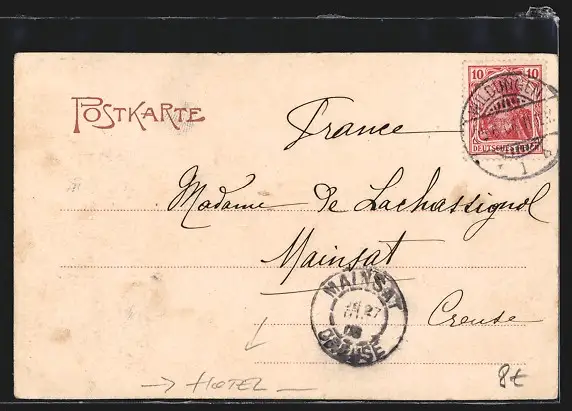 POSTKARTE
10 10
DEUTSCHES REICH
WILDUNGEN
France
Madame de Lachassignol
Mainsat
Creuse
MAINSAT
27
08
CREUSE
→ HOTEL
8€